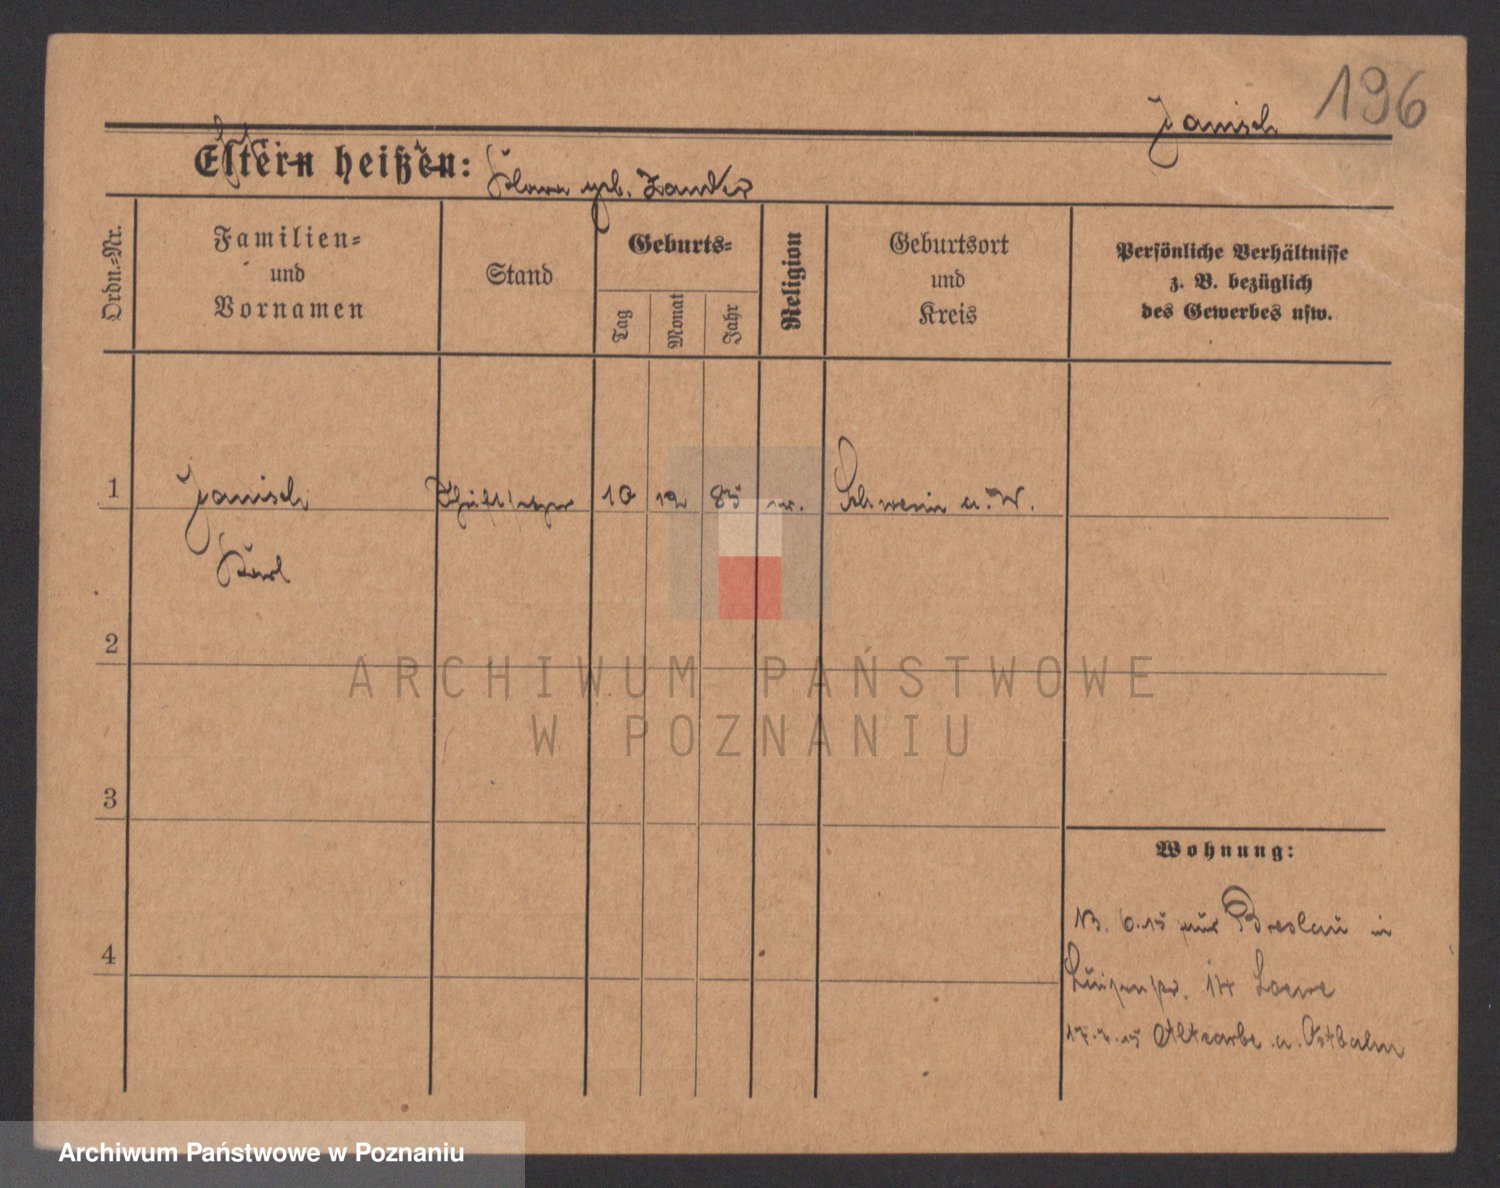 196
Janisch
Eltern heißen:
Klara geb. Zander
Ordn.-Nr.
Familien-
und
Vornamen
Stand
Geburts-
Tag
Monat
Jahr
Religion
Geburtsort
und
Kreis
Persönliche Verhältnisse
z. B. bezüglich
des Gewerbes usw.
1
Janisch
Schriftsetzer
10
12
85
Schwerin a. W.
Karl
2
ARCHIWUM PAŃSTWOWE
W POZNANIU
3
Wohnung:
6.15 Breslau in
4
Luisenstr. 14 Loewe
17.7.15 Altcarbe a. Ostbahn
Archiwum Państwowe w Poznaniu